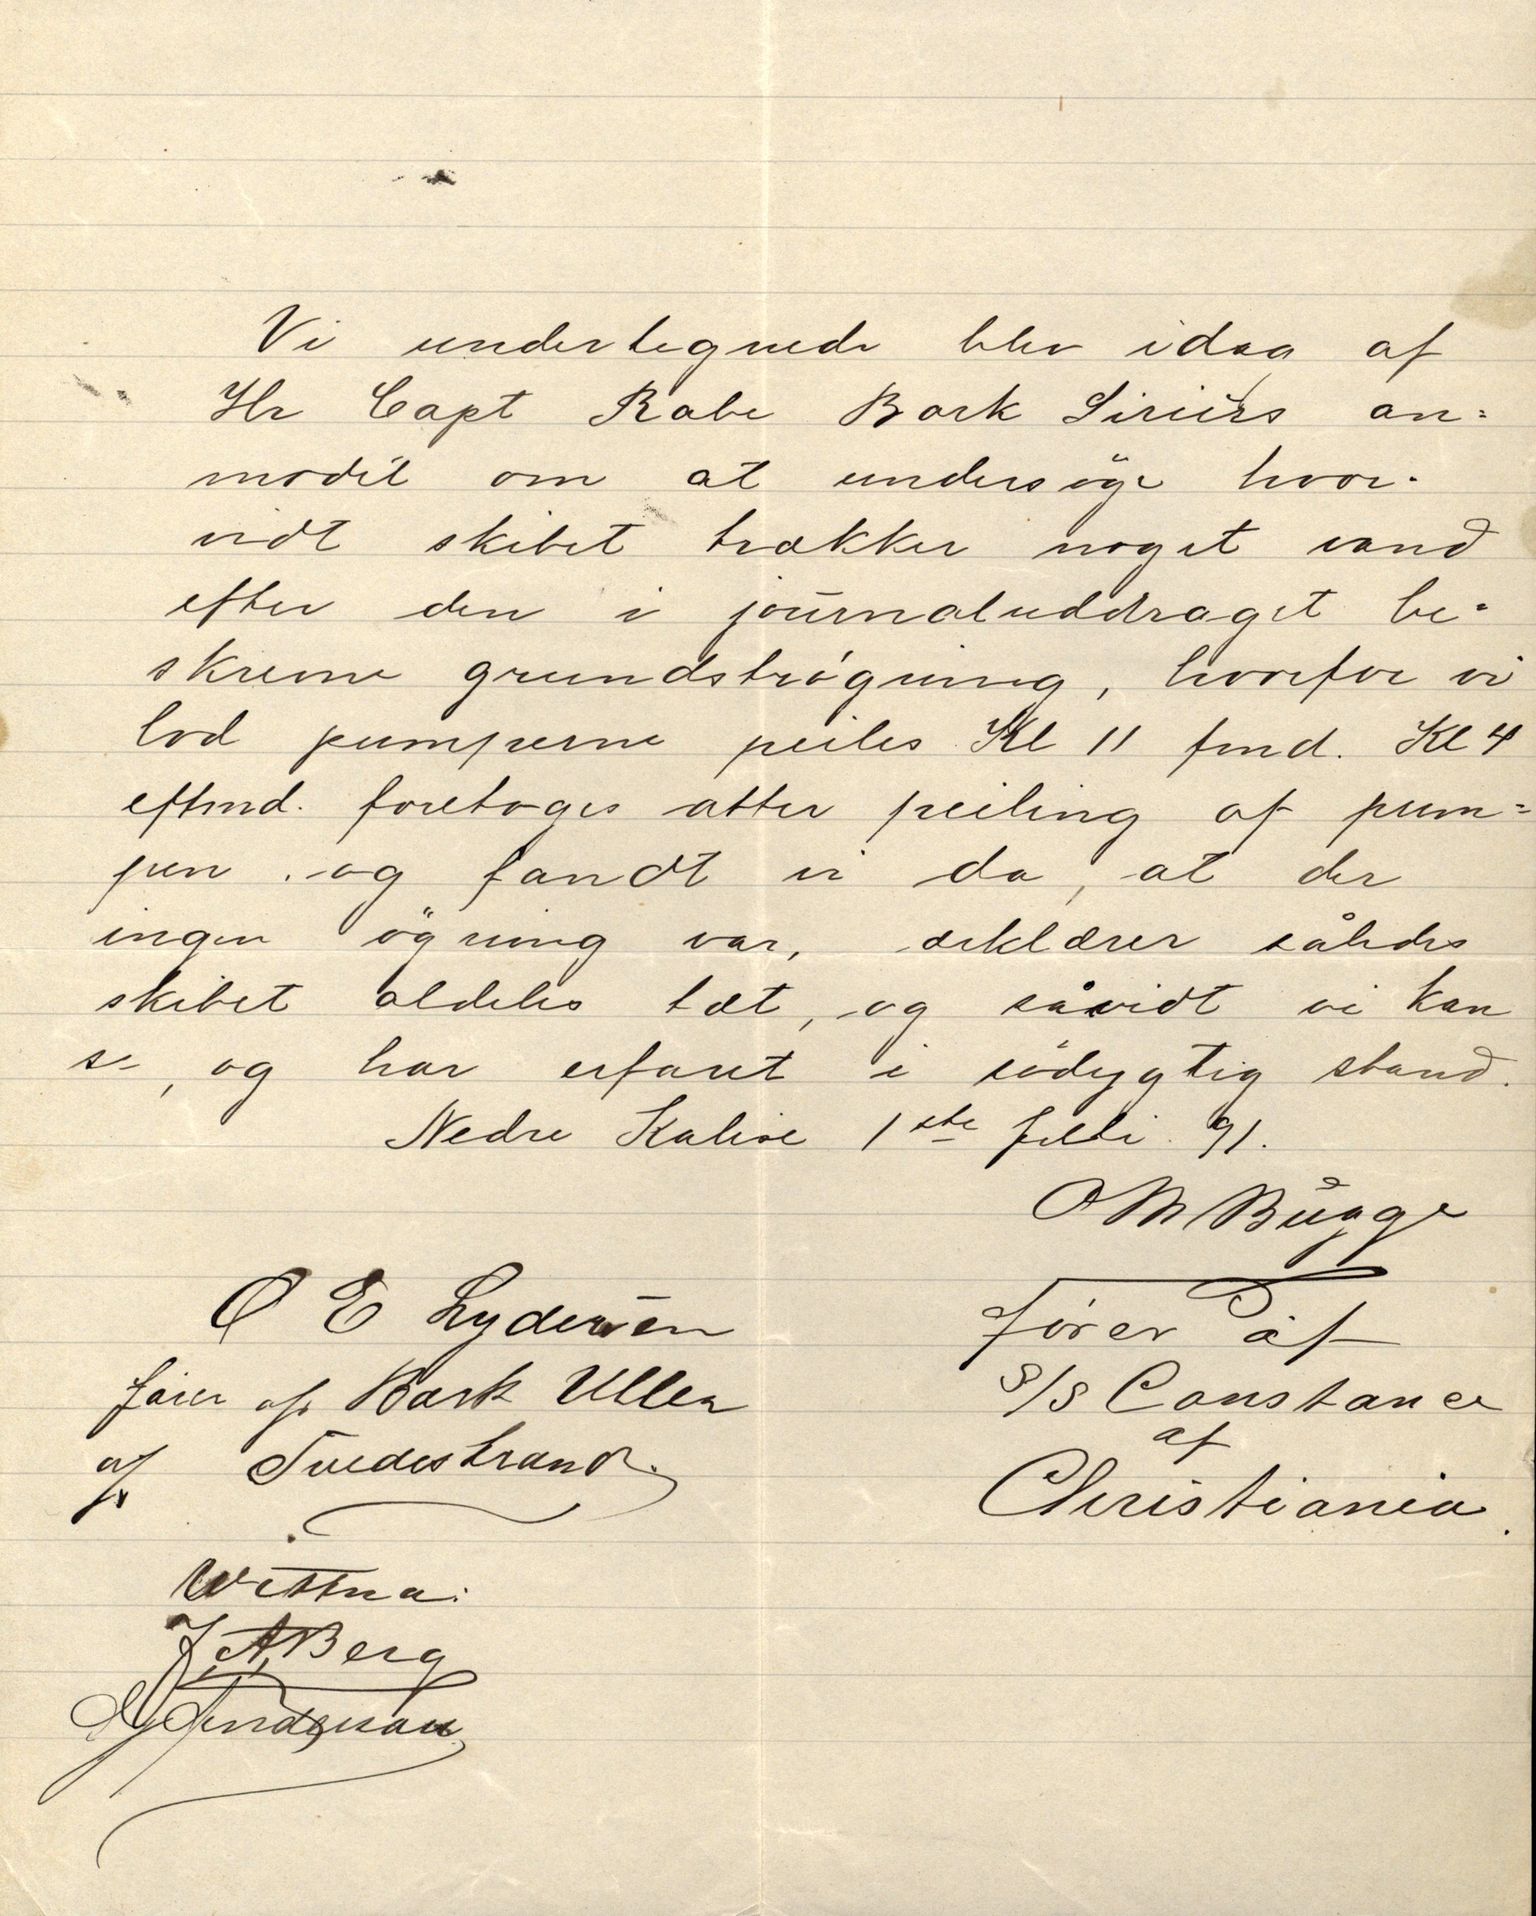 Vi undertegnede blev idag af
Hr Capt Rabe Bark Sirius an=
modet om at undersöge hvor-
vidt skibet trækker noget vand
efter den i journaluddraget be=
skrevne grundstrøgning, hvorfor vi
lod pumperne peiles Kl 11 fmd. Kl 4
eftmd. foretoges atter peiling af pum=
pen og fandt vi da, at der
ingen ögning var, erklærer således
skibet aldeles tæt, og såvidt vi kan
se, og har erfaret i södygtig stand.
Nedre Kalixe 1ste febr. 91.
O M Bugge
Fører af
S/S Constance
af
Christiania.
O E Lydersen
fører af Bark Ullea
af Tvedestrand.
Wittna:
J. A. Berg